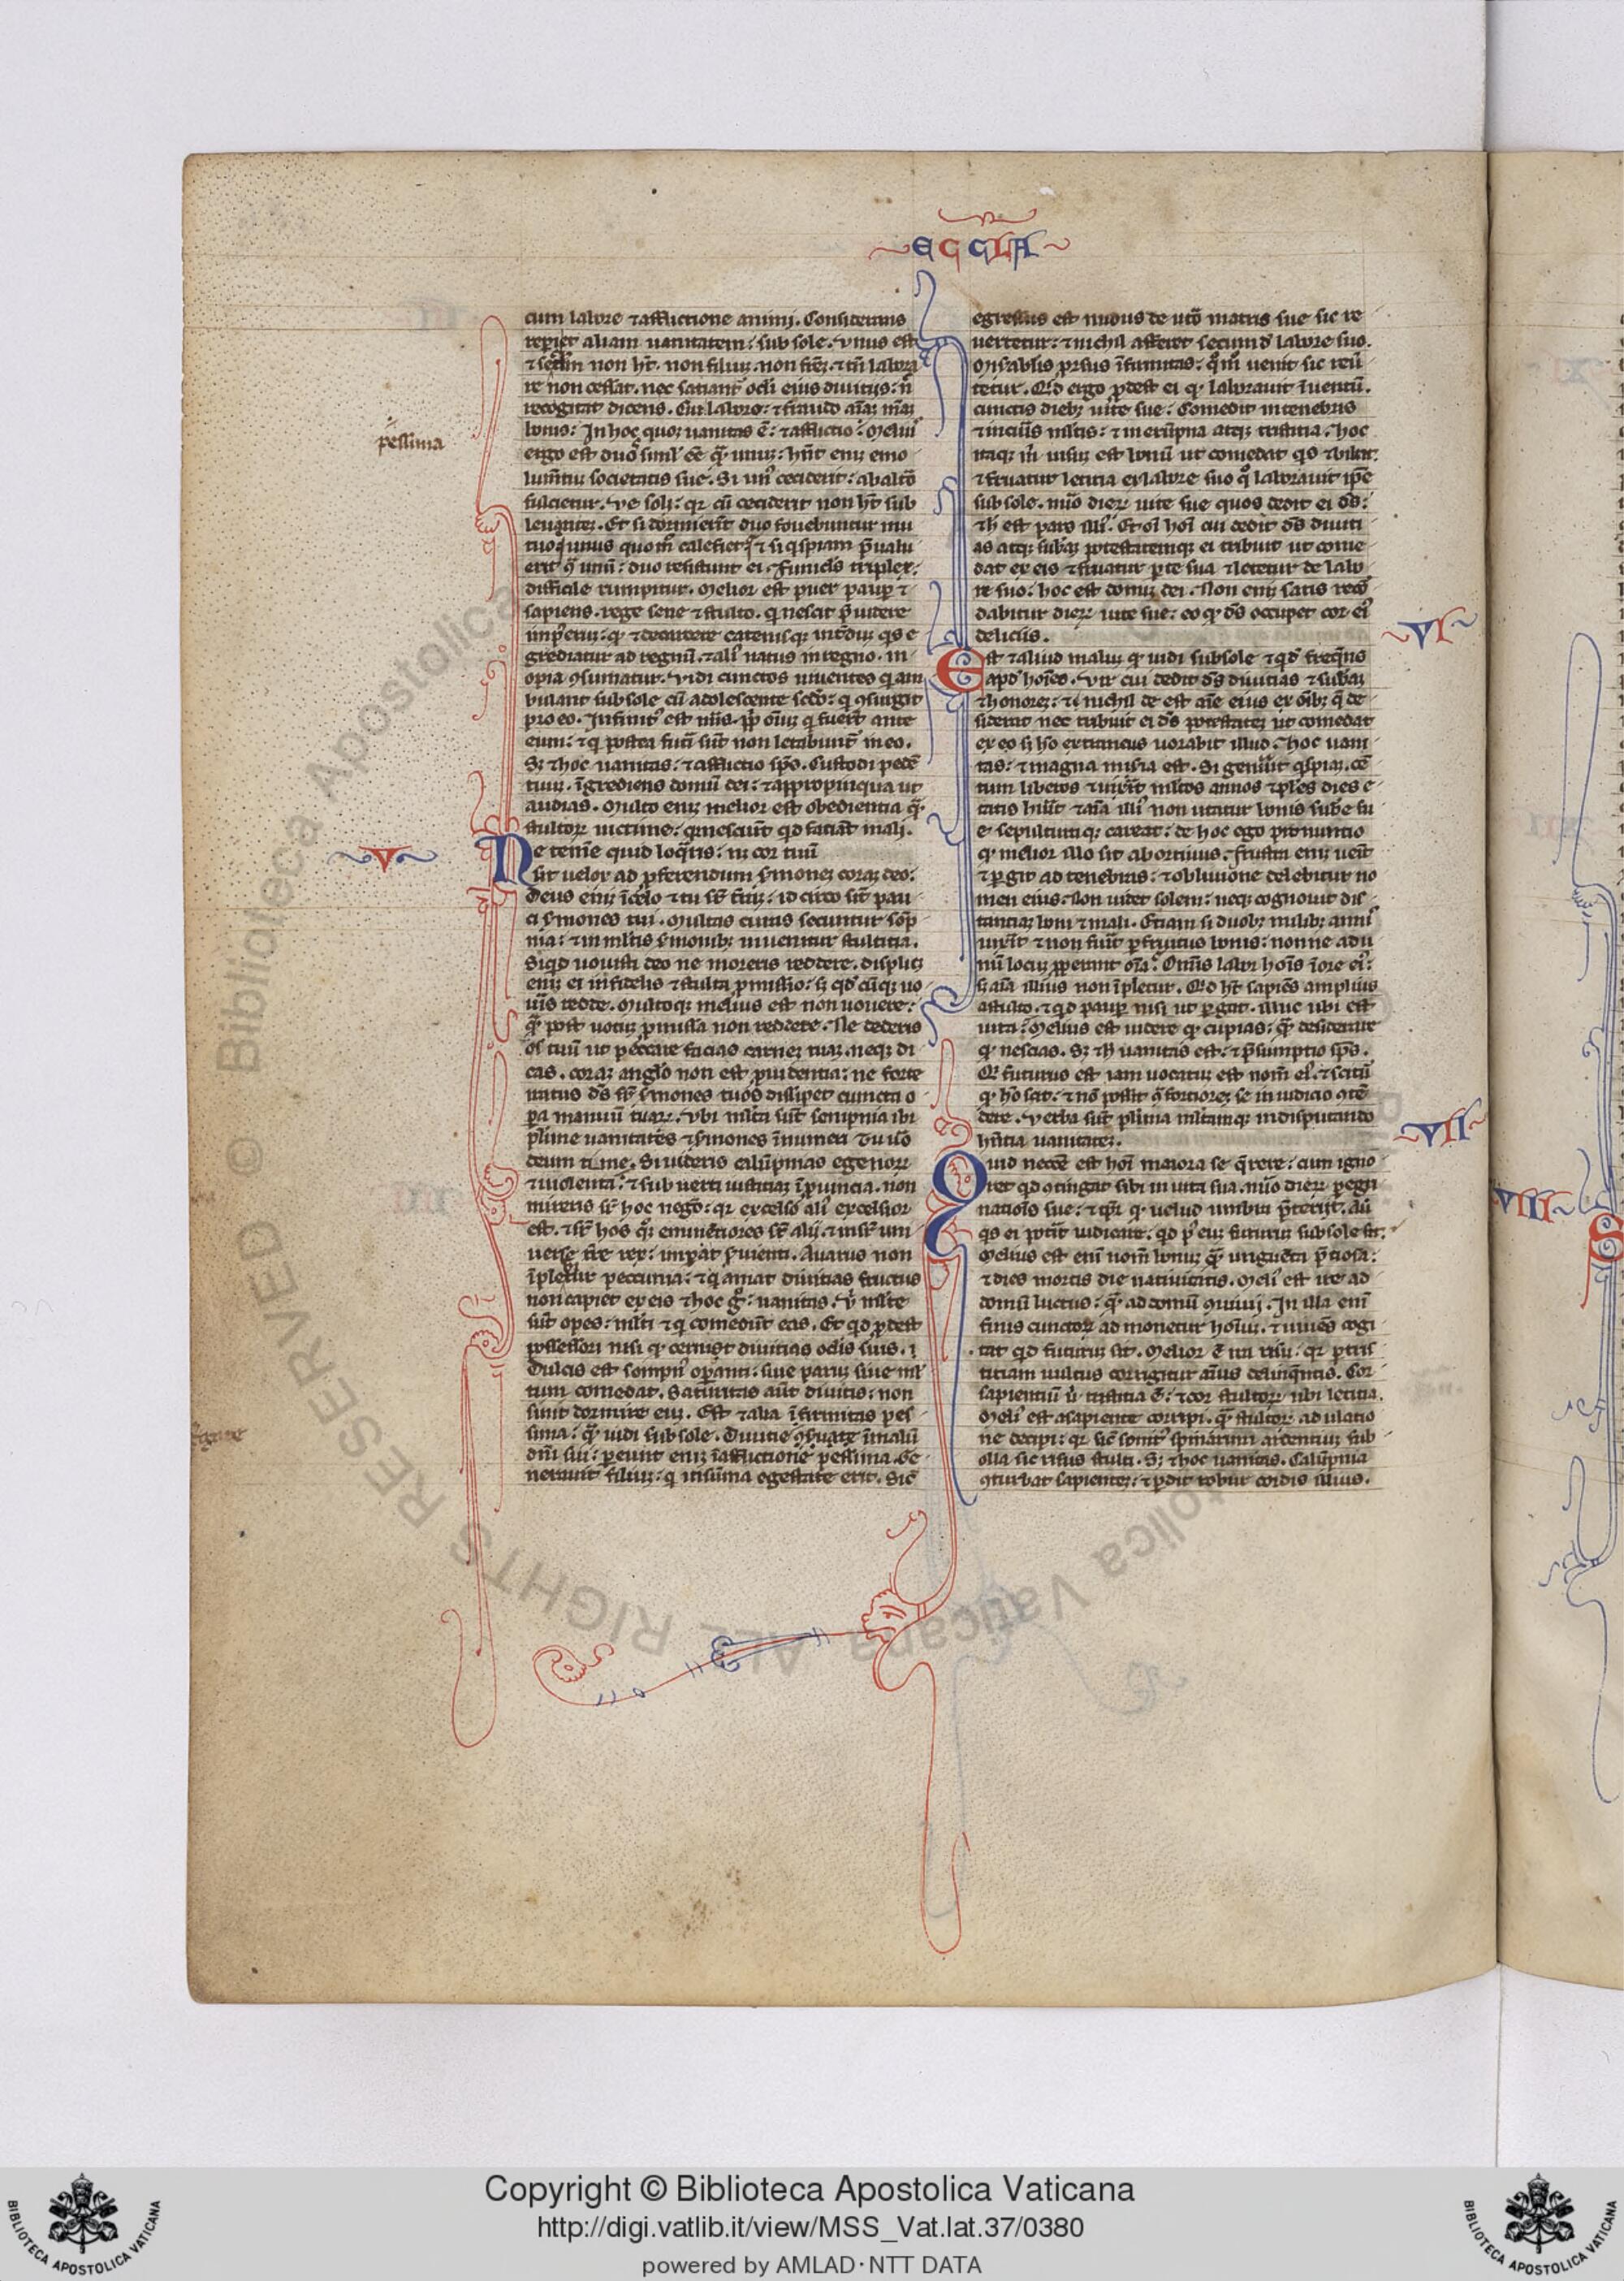 ECCLA
cum labore ⁊ afflictione animi. Considerans
repperi ⁊ aliam uanitatem: sub sole. Vnus est
⁊ secdm non ht. non filium. non frem. ⁊ tn labora
re non cessat. nec satiant oculi eius diuitiis: n
recogitat dicens. Cui laboro: ⁊ fraudo aiam meam
bonis: In hoc quoque uanitas e: ⁊ afflictio: Meliu
ergo est duos simul ee qua unum: hnt enim emo
lumtum societatis sue. Si un ceciderit: ab alto
fulcietur. Ve soli: qr cu ceciderit non ht sub
leuantem. Et si dormierit duo fouebuntur mu
tuo: unus quom calefiet: ⁊ si qspiam preualu
erit
difficile rumpitur. Melior est puer paup ⁊
sapiens. rege sene ⁊ stulto. qui nescit preuidere
grediatur ad regnu. ⁊ ali natus in regno. in
opia consumatur. Vidi cunctos uiuentes qui am
bulant sub sole cu adolescente secdo: q consurgit
pro eo.
eum: ⁊ q postea futi sut non letabunt in eo.
Sz ⁊ hoc uanitas: ⁊ afflictio sps. Custodi pede
tuum. ingrediens domu dei: ⁊ appropinqua ut
audias. Multo enim melior est obedientia qua
stultorum uictime: qui nesciut qd faciat mali.
V
Ne temere quid loquris: nec cor tuu
sit uelox ad proferendum sermonem coram deo:
Deus enim i celo ⁊ tu sr trm: id circo sit pau
ci sermones tui. Multas curas secuntur sop
nia: ⁊ in mltis sermonib; inuenitur stultitia.
Siqd uouisti deo ne moreris reddere. displicet
enim ei infidelis ⁊ stulta promissio: sz qd cuque uo
ueris redde. Multoque melius est non uouere:
qua post uotum promissa non reddere. Ne dederis
os tuu ut peccare facias carnem tuam. neque di
cas. coram anglo non est prouidentia: ne forte
iratus ds sr sermones tuos dissipet cuncta o
pa manuu tuarum. Vbi mlta sut sompnia ibi
plime uanitates ⁊ sermones inumeri Tu uo
deum time. Si uideris calupnias egenorum
⁊ uiolenta: ⁊ sub uerti iustitiam i prouincia. non
mireris sr hoc nego: qr excelso ali excelsior
est. ⁊ sr hos qq; eminetiores sr alii: ⁊ insr uni
uerse tre rex: imperat seruienti. Auarus non
implebitur peccunia: ⁊ qui amat diuitias fructus
non capiet ex eis ⁊ hoc go: uanitas. Vbi mlte
sut opes: mlti ⁊ q comedut eas. Et qd prodest
possessori nisi qd cernit diuitias oclis suis.
Dulcis est sompn operanti: siue parum siue ml
tum comedat. Saturitas aut diuitis: non
sinit dormire eum. Est ⁊ alia infirmitas pes
sima: qua uidi sub sole. Diuitie conseruate in malu
dni sui: pereunt enim in afflictione pessima. Ge
nerauit filium: q in suma egestate erit. Sic
pessima
egressus est nudus de utero matris sue sic re
uertetur: ⁊ nichil afferet secum d labore suo.
Miserabilis prorsus infirmitas: quom uenit sic reu
tetur. Qd ergo prodest ei qd laborauit i uentu.
cunctis dieb; uite sue: Comedit in tenebris
⁊ in curis multis: ⁊ in erupna atque tristitia. Hoc
itaque m uisum est bonu ut comedat qs ⁊ bibat:
⁊ fruatur letitia ex labore suo quo laborauit ipse
sub sole. nuo dierum uite sue quos dedit ei ds:
⁊ h est pars illi. Et oi hoi cui dedit ds diuiti
as atque subam potestatemque ei tribuit ut come
dat ex eis ⁊ fruatur parte sua ⁊ letetur de labo
re suo: hoc est donum dei. Non enim satis recor
dabitur dierum uite sue: eo qd ds occupet cor ei
deliciis.
VI
Est ⁊ aliud malum qd uidi sub sole ⁊ qd frequens
apd hoies. Vir cui dedit ds diuitias ⁊ subam
⁊ honorem: ⁊ nichil de est aie eius ex oib; que de
siderat nec tribuit ei ds potestatem ut comedat
ex eo sz ho extraneus uorabit illud. Hoc uani
tas: ⁊ magna miseria est. Si genuerit qspiam. cen
tum liberos ⁊ uixerit mltos annos ⁊ ples dies e
tatis huerit ⁊ aia illi non utatur bonis sube su
e sepulturaque careat: de hoc ego pronuntio
qd melior illo sit abortiuus. Frustra enim uenit
⁊ pergit ad tenebras: ⁊ obliuione delebitur no
men eius. Non uidet solem: neque cognouit dis
tantiam boni ⁊ mali. Etiam si duob; milib; annis
uixerit ⁊ non fuerit perfruitus bonis: nonne ad u
nu locum properant oia: Omnis labor hois in ore ei:
sz aia illius non impletur. Qd ht sapiens amplius
a stulto. ⁊ qd pauper nisi ut pergat. illuc ubi est
uita: Melius est uidere qd cupias: qua desiderare
qd nescias. Sz ⁊ h uanitas est: ⁊ presumptio sps.
Qi futurus est iam uocatum est nom ei: ⁊ scitur
qd ho sit: ⁊ no possit contra fortiorem se in iudicio conten
dere. Verba sut plurima multamque in disputando
hntia uanitatem.
VII
Quid necce est hoi maiora se querere: cum igno
ret qd contingat sibi in uita sua. nuo dierum pegri
nationis sue: ⁊ tpr qd uelud umbra preterit. Aut
qs ei poterit indicare. qd post eum futurum sub sole sit:
Melius est eni nom bonum qua unguenta pretiosa:
⁊ dies mortis die natiuitatis. Meli est ire ad
domu luctus: qua ad domu conuiuii. In illa eni
finis cunctorum ad monetur hoium. ⁊ uiuens cogi
tat qd futurum sit. Melior e ira risu: qr per tris
titiam uultus corrigitur aius delinquentis. Cor
sapientiu u tristitia e: ⁊ cor stultorum ubi letitia.
Meli est a sapiente corripi. qua stultorum ad ulatio
ne decipi: qr sic sonit spinarum ardentium sub
olla sic risus stulti. Sz ⁊ hoc uanitas. Calupnia
conturbat sapientem: ⁊ perdit robur cordis illius.
VIII
Copyright © Biblioteca Apostolica Vaticana
http://digi.vatlib.it/view/MSS_Vat.lat.37/0380
powered by AMLAD·NTT DATA
BIBLIOTECA APOSTOLICA VATICANA
BIBLIOTECA APOSTOLICA VATICANA